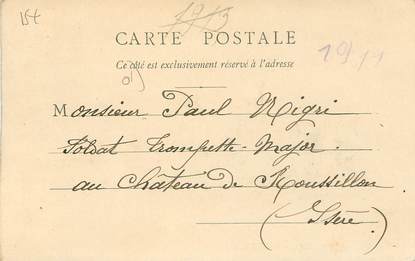 154
1913
CARTE POSTALE
Ce côté est exclusivement réservé à l'adresse
19/11
Monsieur Paul Nigri
Soldat Trompette-Major.
au Château de Roussillon
(Isère)